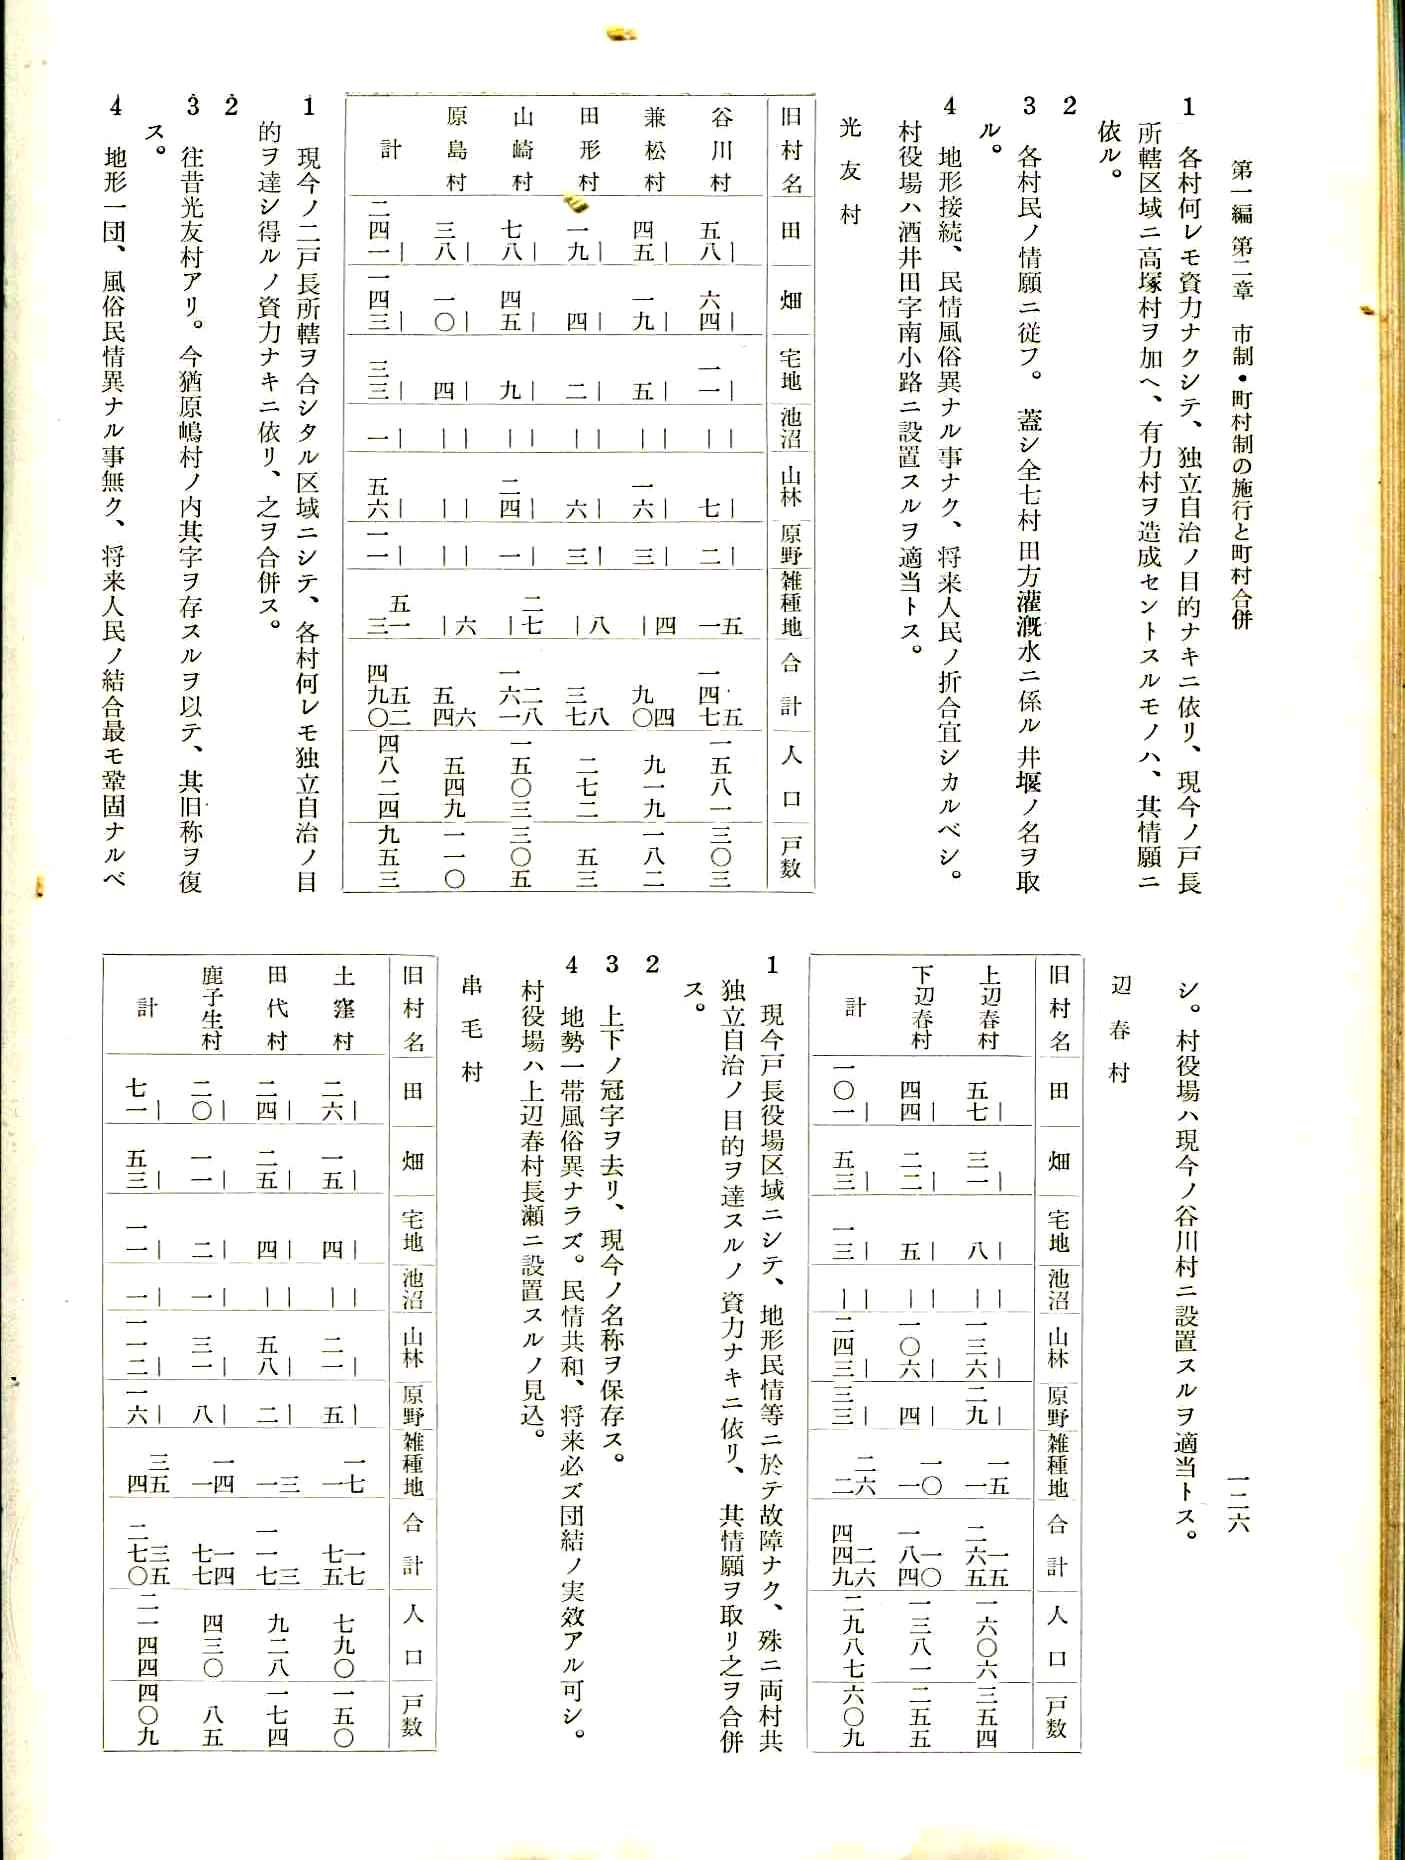 第一編 第二章 市制・町村制の施行と町村合併
1 各村何レモ資力ナクシテ、独立自治ノ目的ナキニ依リ、現今ノ戸長
所轄区域ニ高塚村ヲ加ヘ、有力村ヲ造成セントスルモノハ、其情願ニ
依ル。
2
3 各村民ノ情願ニ従フ。蓋シ全七村田方灌漑水ニ係ル井堰ノ名ヲ取
ル。
4 地形接続、民情風俗異ナル事ナク、将来人民ノ折合宜シカルベシ。
村役場ハ酒井田字南小路ニ設置スルヲ適当トス。
光友村
旧村名 田 畑 宅地 池沼 山林 原野 雑種地 合計 人口 戸数
谷川村 ｜ 五八 ｜ 六四 ｜ 一一 ｜ ｜ ｜ 七 ｜ 二 五 一 五 一四七 一五八一 三〇三
兼松村 ｜ 四五 ｜ 一九 ｜ 五 ｜ ｜ ｜ 一六 ｜ 三 四 ｜ 四 九〇 九一九 一八二
田形村 ｜ 一九 ｜ 四 ｜ 二 ｜ ｜ ｜ 六 ｜ 三 八 ｜ 八 三七 二七二 五三
山崎村 ｜ 七八 ｜ 四五 ｜ 九 ｜ ｜ ｜ 二四 ｜ 一 二七 ｜ 二八 一六一 一五〇三 三〇五
原島村 ｜ 三八 ｜ 一〇 ｜ 四 ｜ ｜ ｜ ｜ ｜ ｜ 六 ｜ 六 五四 五四九 一一〇
計 ｜ 二四一 ｜ 一四三 ｜ 三三 ｜ 一 ｜ 五六 ｜ 一一 五一 三 五二 四九〇 四八二四 九五三
1 現今ノ二戸長所轄ヲ合シタル区域ニシテ、各村何レモ独立自治ノ目
的ヲ達シ得ルノ資力ナキニ依リ、之ヲ合併ス。
2
3 往昔光友村アリ。今猶原嶋村ノ内其字ヲ存スルヲ以テ、其旧称ヲ復
ス。
4 地形一団、風俗民情異ナル事無ク、将来人民ノ結合最モ鞏固ナルベ
シ。村役場ハ現今ノ谷川村ニ設置スルヲ適当トス。
一二六
辺春村
旧村名 田 畑 宅地 池沼 山林 原野 雑種地 合計 人口 戸数
上辺春村 ｜ 五七 ｜ 三一 ｜ 八 ｜ ｜ ｜ 一三六 ｜ 二九 一五 一 一五 二六五 一六〇六 三五四
下辺春村 ｜ 四四 ｜ 二二 ｜ 五 ｜ ｜ ｜ 一〇六 ｜ 四 一〇 一 一〇 一八四 一三八一 二五五
計 ｜ 一〇一 ｜ 五三 ｜ 一三 ｜ ｜ ｜ 二四三 ｜ 三三 二六 二 二六 四四九 二九八七 六〇九
1 現今戸長役場区域ニシテ、地形民情等ニ於テ故障ナク、殊ニ両村共
独立自治ノ目的ヲ達スルノ資力ナキニ依リ、其情願ヲ取リ之ヲ合併
ス。
2
3 上下ノ冠字ヲ去リ、現今ノ名称ヲ保存ス。
4 地勢一帯風俗異ナラズ。民情共和、将来必ズ団結ノ実效アル可シ。
村役場ハ上辺春村長瀬ニ設置スルノ見込。
串毛村
旧村名 田 畑 宅地 池沼 山林 原野 雑種地 合計 人口 戸数
土窪村 ｜ 二六 ｜ 一五 ｜ 四 ｜ ｜ ｜ 二一 ｜ 五 一七 一 一七 七五 七九〇 一五〇
田代村 ｜ 二四 ｜ 二五 ｜ 四 ｜ ｜ ｜ 五八 ｜ 二 三 一 三 一一七 九二八 一七四
鹿子生村 ｜ 二〇 ｜ 一一 ｜ 二 ｜ 一 ｜ 三一 ｜ 八 一四 一 一四 七七 四三〇 八五
計 ｜ 七一 ｜ 五三 ｜ 一一 ｜ 一 ｜ 一一二 ｜ 一六 三五 四 三五 二七〇 二一四四 四〇九